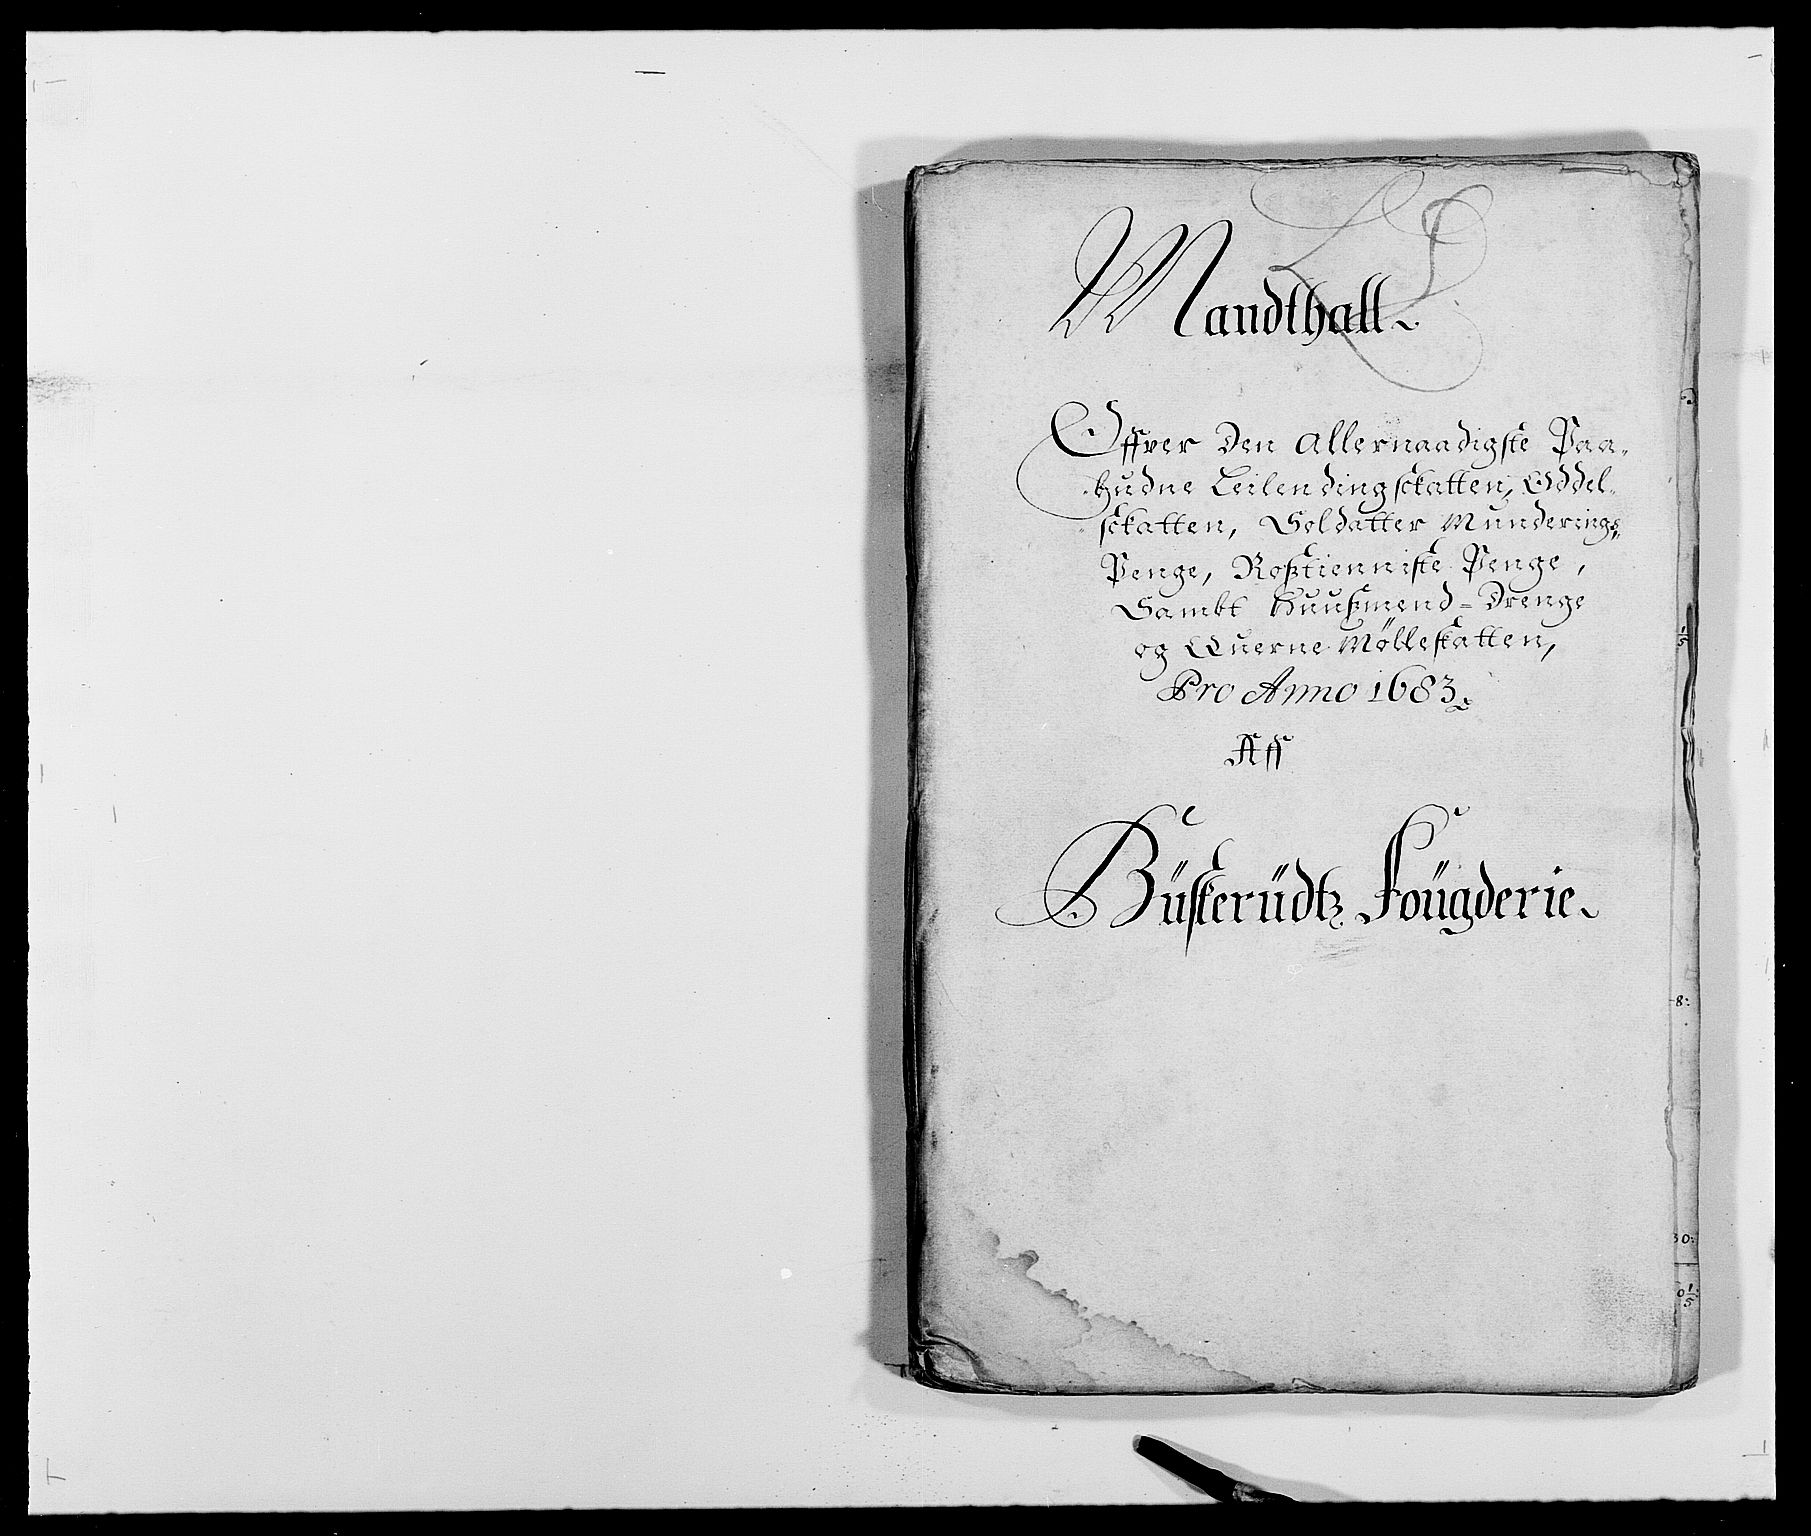 Mandthall.
Offver Den Allernaadigste Paa-
budne Leilendingsckatten, Oddel-
sckatten, Soldatter Munderings-
Penge, Roßtienniste Penge,
Sambt Huußmend-Drenge
og Querne Mølleskatten,
Pro Anno 1683.
Aff
Büskerüdtz Foügderie.
1/5
8:
30:
0 1/5